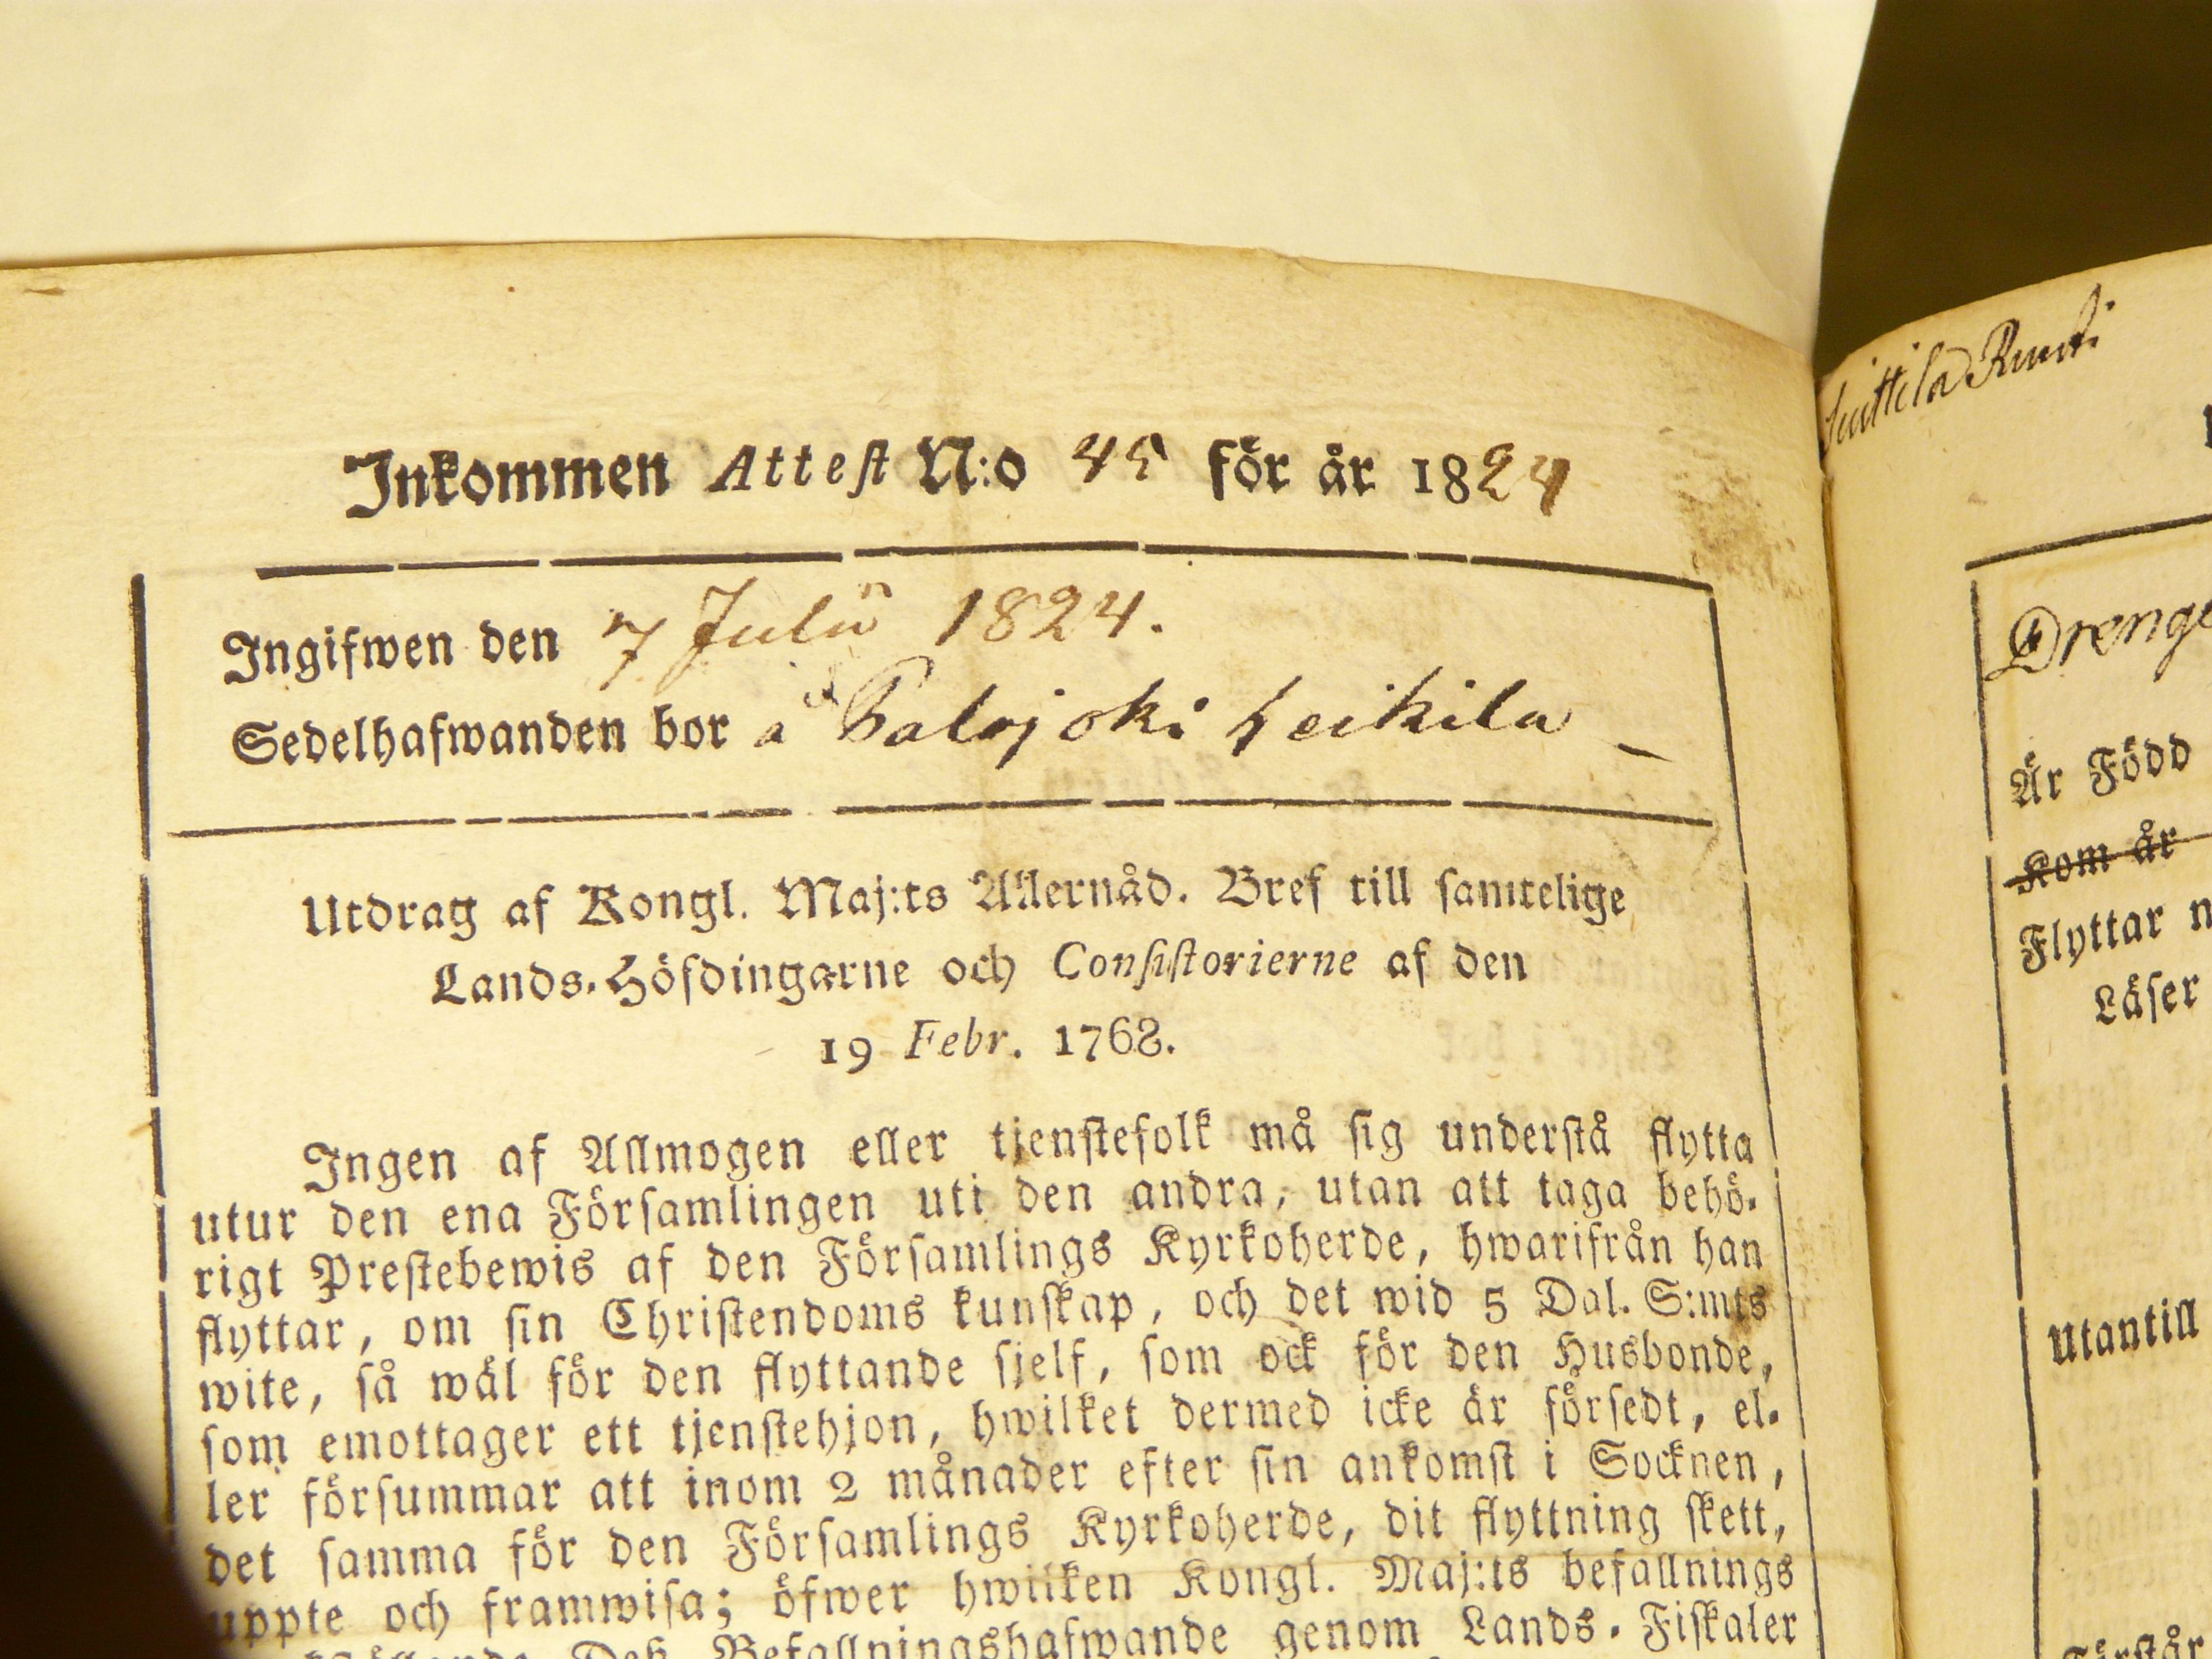 Inkommen Attest N:o 45 för år 1824
Ingifwen den 7 Julii 1824.
Sedelhafwanden bor å Palojoki heikila
Utdrag af Kongl. Maj:ts Allernåd. Bref till samtelige
Lands-Höfdingarne och Consistorierne af den
19 Febr. 1768.
Ingen af Allmogen eller tjenstefolk må sig understå flytta
utur den ena Församlingen uti den andra, utan att taga behö-
rigt Prestebewis af den Församlings Kyrkoherde, hwarifrån han
flyttar, om sin Christendoms kunskap, och det wid 5 Dal. S:mts
wite, så wäl för den flyttande sjelf, som ock för den Husbonde,
som emottager ett tjenstehjon, hwilket dermed icke är försedt, el-
ler försummar att inom 2 månader efter sin ankomst i Socknen,
det samma för den Församlings Kyrkoherde, dit flyttning skett,
uppte och framwisa; öfwer hwilken Kongl. Maj:ts befallnings
Deß Befallningshafwande genom Lands-Fiskaler
Drenge
Är Född
Kom år
Flyttar n
Läser
Utantill
Förstår